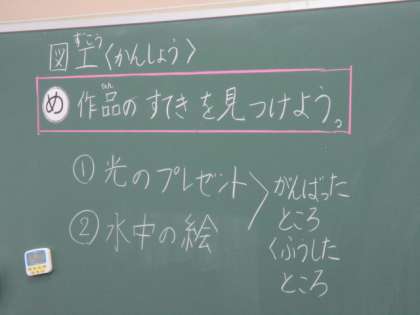 図工〈かんしょう〉
ずこう
め 作品のすてきを見つけよう。
ひん
① 光のプレゼント
② 水中の絵
がんばった
ところ
くふうした
ところ